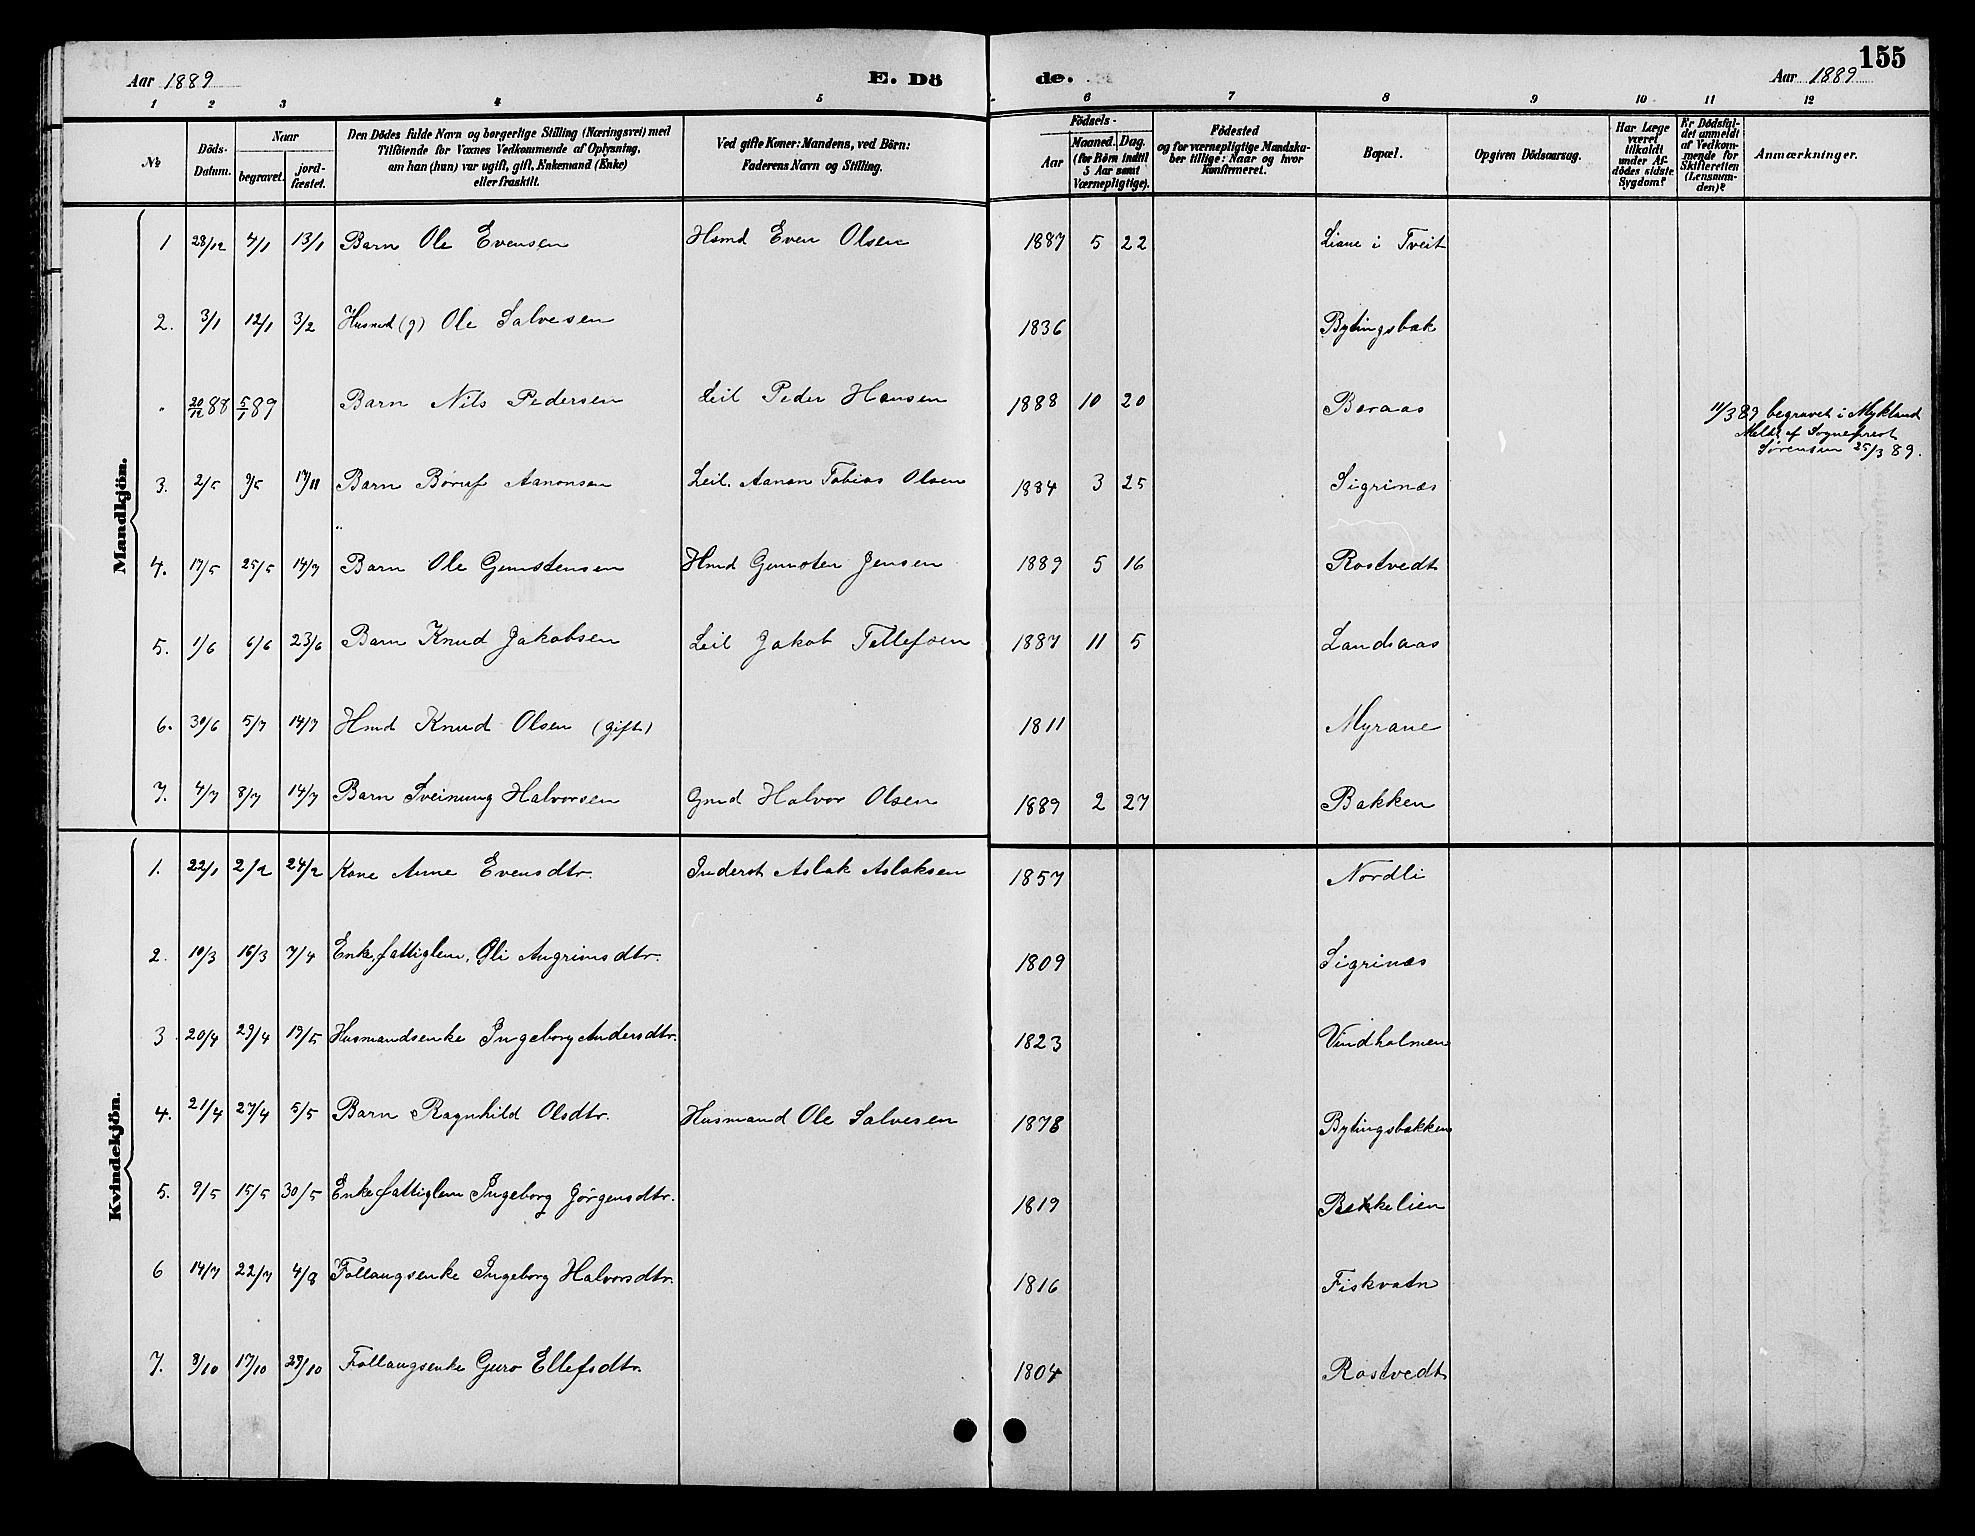 155
Aar 1889 E. Dö de. Aar 1889
1 2 3 4 5 6 7 8 9 10 11 12
№ Döds-Datum. Naar begravet. jord-fæstet. Den Dödes fulde Navn og borgerlige Stilling (Næringsvei) med Tilföiende for Voxnes Vedkommende af Oplysning, om han (hun) var ugift, gift, Enkemand (Enke) eller fraskilt. Ved gifte Koner: Mandens, ved Börn: Faderens Navn og Stilling. Födsels- Aar Maaned. Dag. (for Börn indtil 5 Aar samt Værnepligtige). Födested og for værnepligtige Mandskaber tillige: Naar og hvor konfirmeret. Bopæl. Opgiven Dödsaarsag. Har Læge været tilkaldt under Afdödes sidste Sygdom? Er Dödsfaldet anmeldt af Vedkommende for Skifteretten (Lensmanden)? Anmærkninger.
Mandkjön.
1 28/12 4/1 13/1 Barn Ole Evensen Hsmd Even Olsen 1887 5 22 Liane i Tveit
2. 3/1 12/1 3/2 Husmd (g) Ole Salvesen 1836 Bytingsbak
" 20/12 88 5/1 89 Barn Nils Pedersen Leil Peder Hansen 1888 10 20 Boraas 11/3 89 begravet i Mykland
Meldt af Sogneprest
Sørensen 25/3 89.
3. 2/5 9/5 17/11 Barn Aanonsen Leil. Aanon Tobias Olsen 1884 3 25 Sigrinæs
4. 17/5 25/5 14/7 Barn Ole Gunstensen Hmd Gunsten Jensen 1889 5 16 Rostvedt
5. 1/6 6/6 23/6 Barn Knud Jakobsen Leil Jakob Tellefsen 1887 11 5 Landsaas
6. 30/6 5/7 14/7 Hmd Knud Olsen (gift) 1811 Myrane
7. 4/7 8/7 14/7 Barn Sveinung Halvorsen Gmd Halvor Olsen 1889 2 27 Bakken
Kvindekjön.
1. 22/1 2/2 24/2 Kone Anne Evensdtr. Inderst Aslak Aslaksen 1857 Nordli
2. 10/3 16/3 7/4 Enke, fattiglem, Oli Angrimsdtr. 1809 Sigrinæs
3 20/4 29/4 19/5 Husmandsenke Ingeborg Andersdtr. 1823 Vindholmen
4. 21/4 27/4 5/5 Barn Ragnhild Olsdtr. Husmand Ole Salvesen 1878 Bytingsbakken
5. 9/5 15/5 30/5 Enke fattiglem Ingeborg Jörgensdtr. 1819 Bekkelien
6 14/7 22/7 4/8 Follaugsenke Ingeborg Halvorsdtr. 1816 Fiskvatn
7. 9/10 17/10 29/10 Follaugsenke Guro Ellefsdtr. 1804 Rostvedt